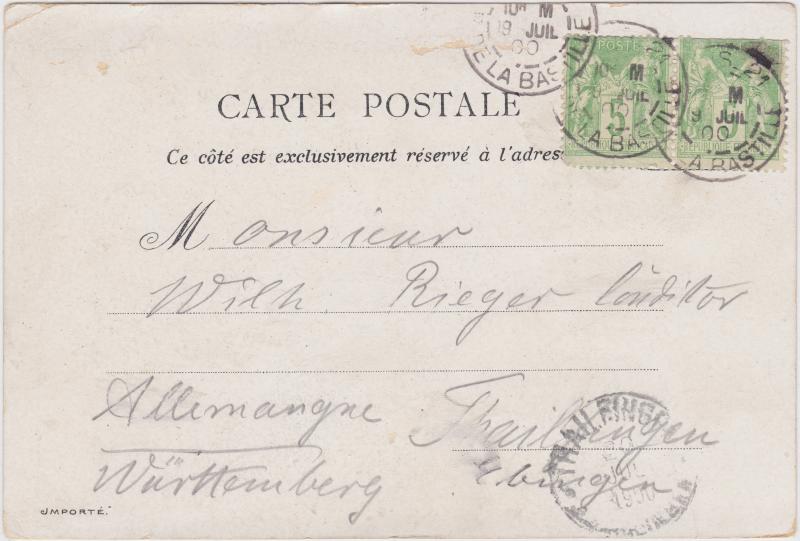 10H M
19 JUIL
00
DE LA BASTILLE
POSTE
10 M
JUIL
00
LA BASTILLE
5
21
M
19 JUIL
00
LA BASTILLE
5
CARTE POSTALE
Ce côté est exclusivement réservé à l'adres
Monsieur
Wilh. Rieger Conditor
Allemangne Thailfingen
Württemberg Ebingen
THAILFINGEN
20
JUL
1900
IMPORTÉ.